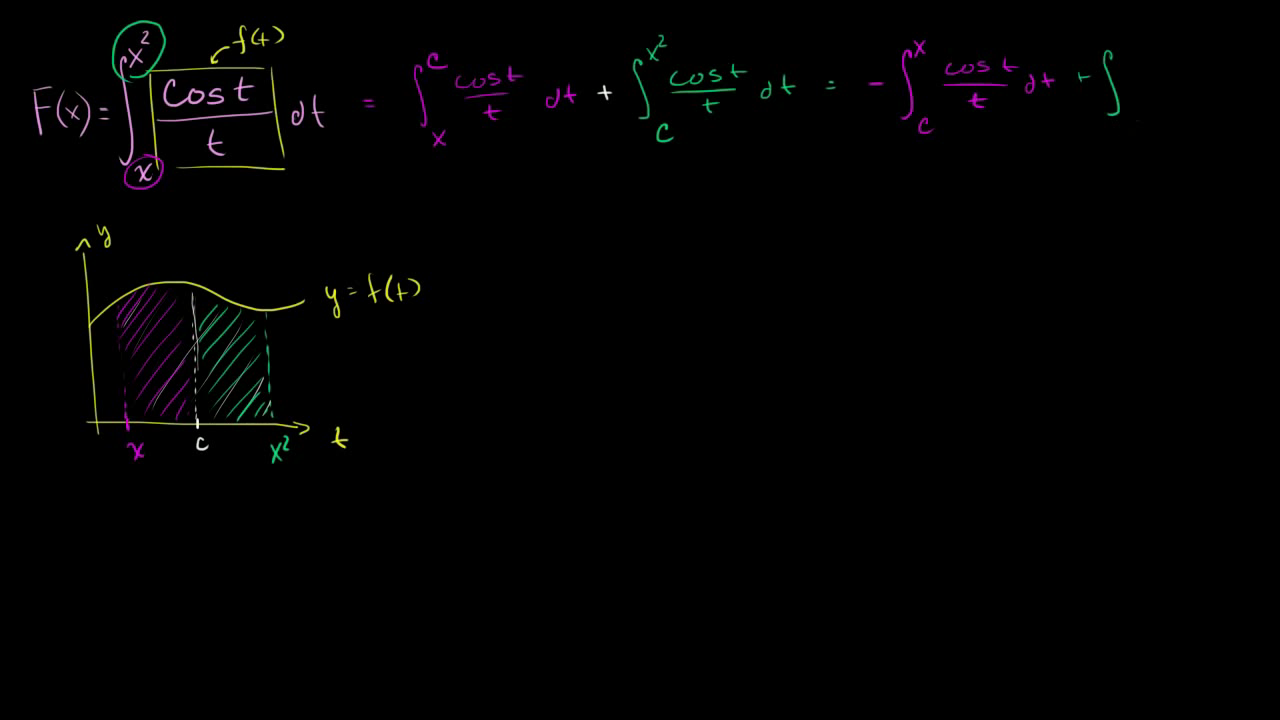 f(t)
F(x) = ∫_x^{x²} cos t / t dt = ∫_x^c cos t / t dt + ∫_c^{x²} cos t / t dt = - ∫_c^x cos t / t dt + ∫
y
y = f(t)
x c x² t